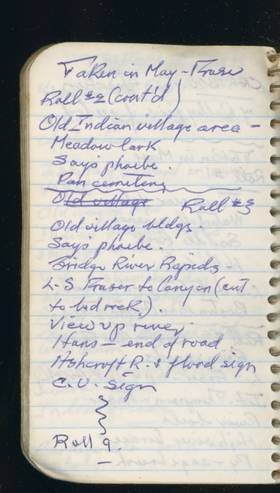 Taken in May - Fraser
Roll #2 (cont'd)
Old Indian village area -
Meadow lark
Says phoebe.
Pan cemetery
Old village Roll #3
Old village bldgs.
Says phoebe.
Bridge River Rapids -
L-S Fraser to Canyon (cut
to bed rock).
View up river
Hans - end of road.
Ashcroft R. & flood sign
C.U. sign
Roll 9.